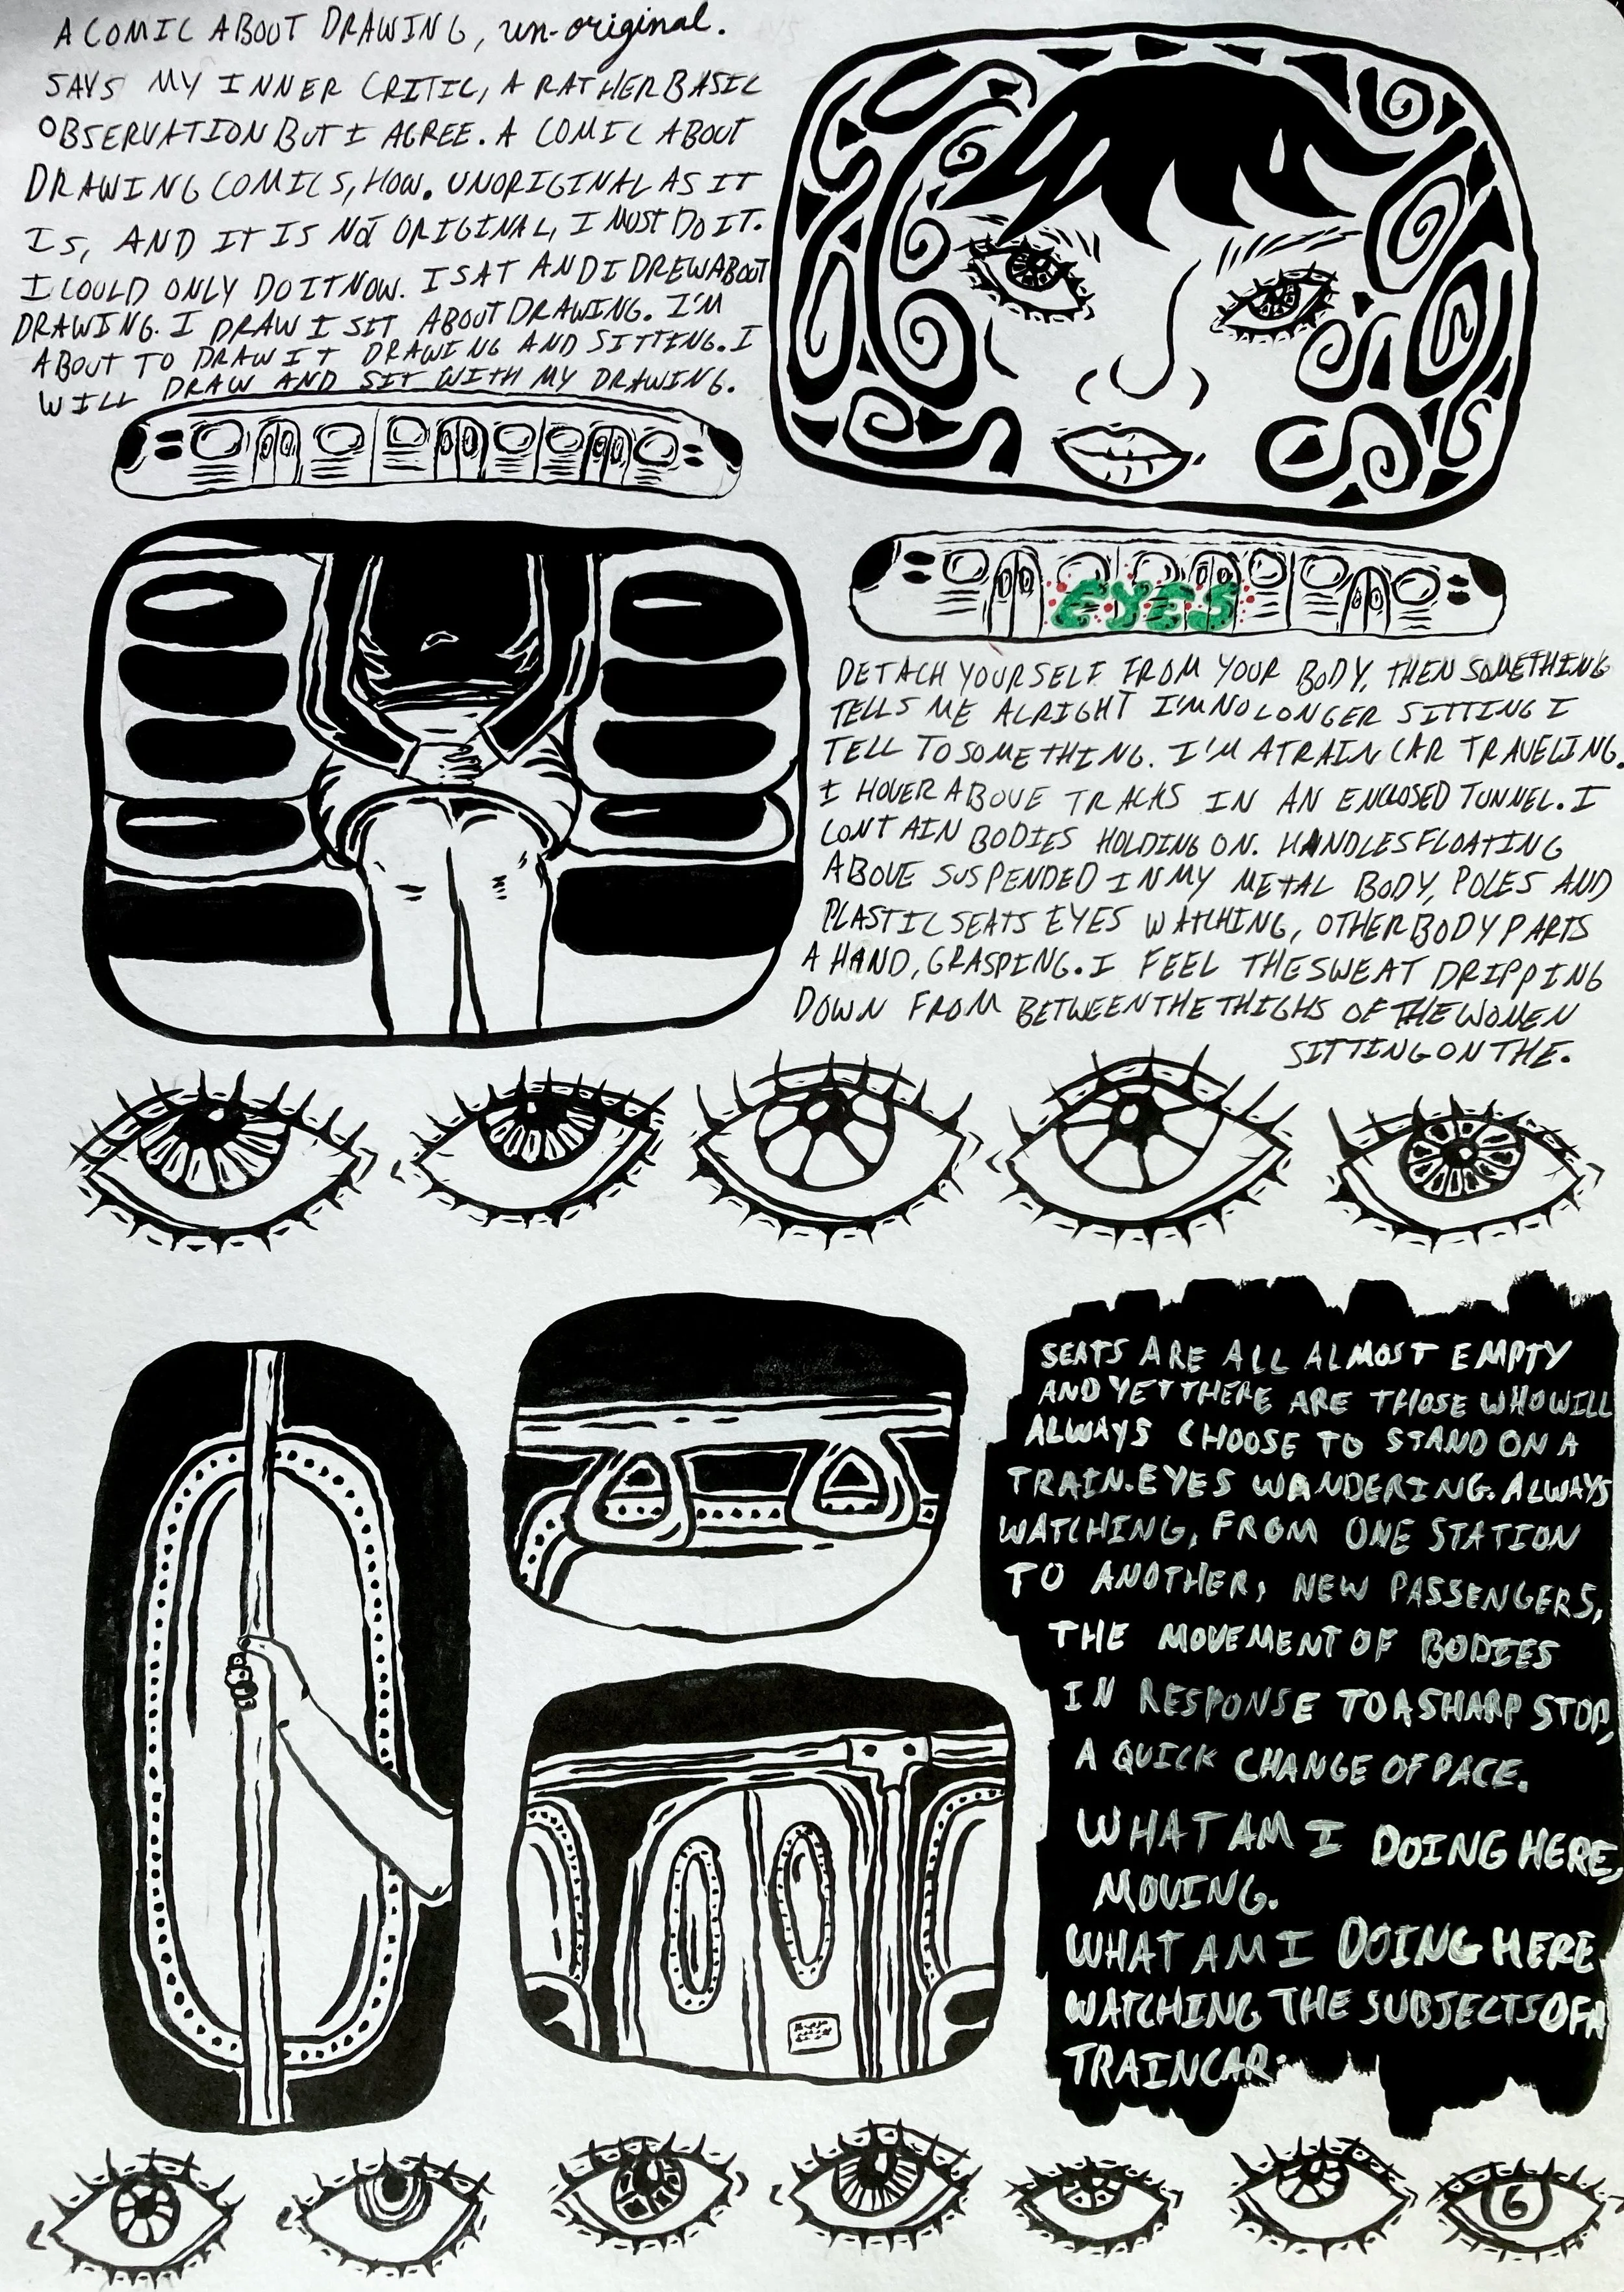 A COMIC ABOUT DRAWING, un-original.
SAYS MY INNER CRITIC, A RATHER BASIC
OBSERVATION BUT I AGREE. A COMIC ABOUT
DRAWING COMICS, HOW. UNORIGINAL AS IT
IS, AND IT IS NOT ORIGINAL, I MUST DO IT.
I COULD ONLY DO IT NOW. I SAT AND I DREW ABOUT
DRAWING. I DRAW I SIT ABOUT DRAWING. I'M
ABOUT TO DRAW IT DRAWING AND SITTING. I
WILL DRAW AND SIT WITH MY DRAWING.
EYES
DETACH YOURSELF FROM YOUR BODY, THEN SOMETHING
TELLS ME ALRIGHT I'M NO LONGER SITTING I
TELL TO SOMETHING. I'M A TRAIN CAR TRAVELING.
I HOVER ABOVE TRACKS IN AN ENCLOSED TUNNEL. I
CONTAIN BODIES HOLDING ON. HANDLES FLOATING
ABOVE SUSPENDED IN MY METAL BODY, POLES AND
PLASTIC SEATS EYES WATCHING, OTHER BODY PARTS
A HAND, GRASPING. I FEEL THE SWEAT DRIPPING
DOWN FROM BETWEEN THE THIGHS OF THE WOMEN
SITTING ON THE.
SEATS ARE ALL ALMOST EMPTY
AND YET THERE ARE THOSE WHO WILL
ALWAYS CHOOSE TO STAND ON A
TRAIN. EYES WANDERING. ALWAYS
WATCHING, FROM ONE STATION
TO ANOTHER, NEW PASSENGERS,
THE MOVEMENT OF BODIES
IN RESPONSE TO A SHARP STOP,
A QUICK CHANGE OF PACE.
WHAT AM I DOING HERE,
MOVING.
WHAT AM I DOING HERE
WATCHING THE SUBJECTS OF A
TRAIN CAR.
6